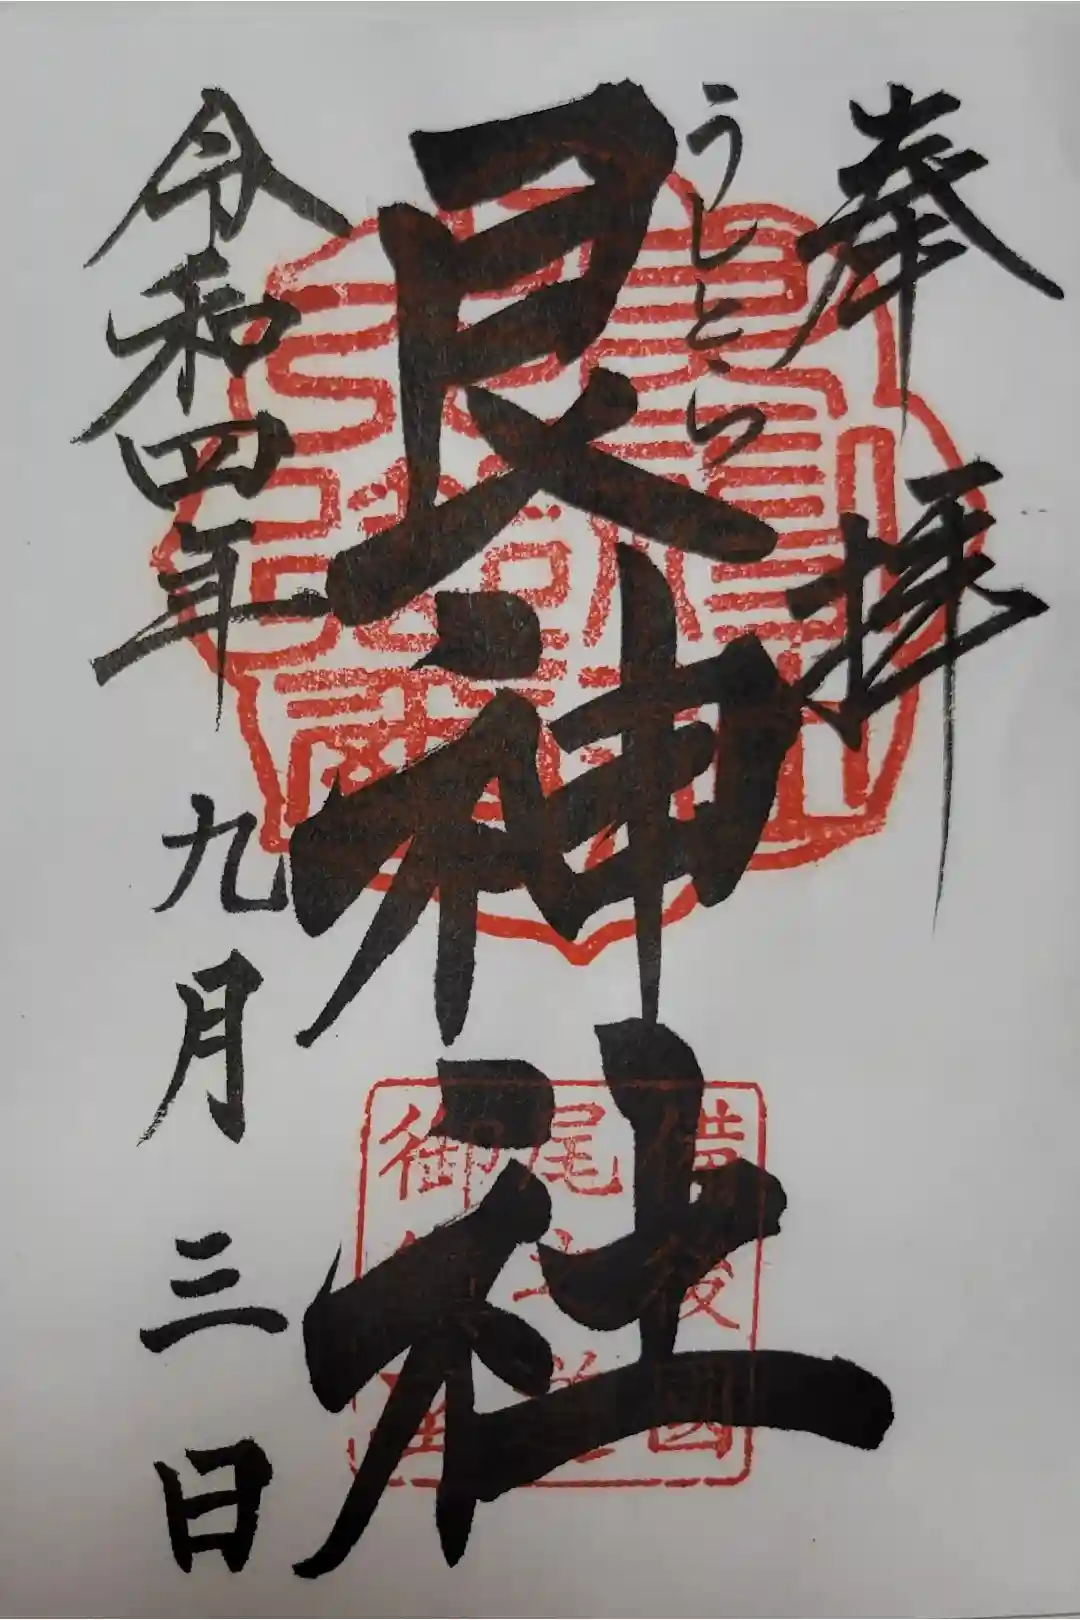 奉拝
うしとら
艮神社
備後國
尾道
御
令和四年
九月三日